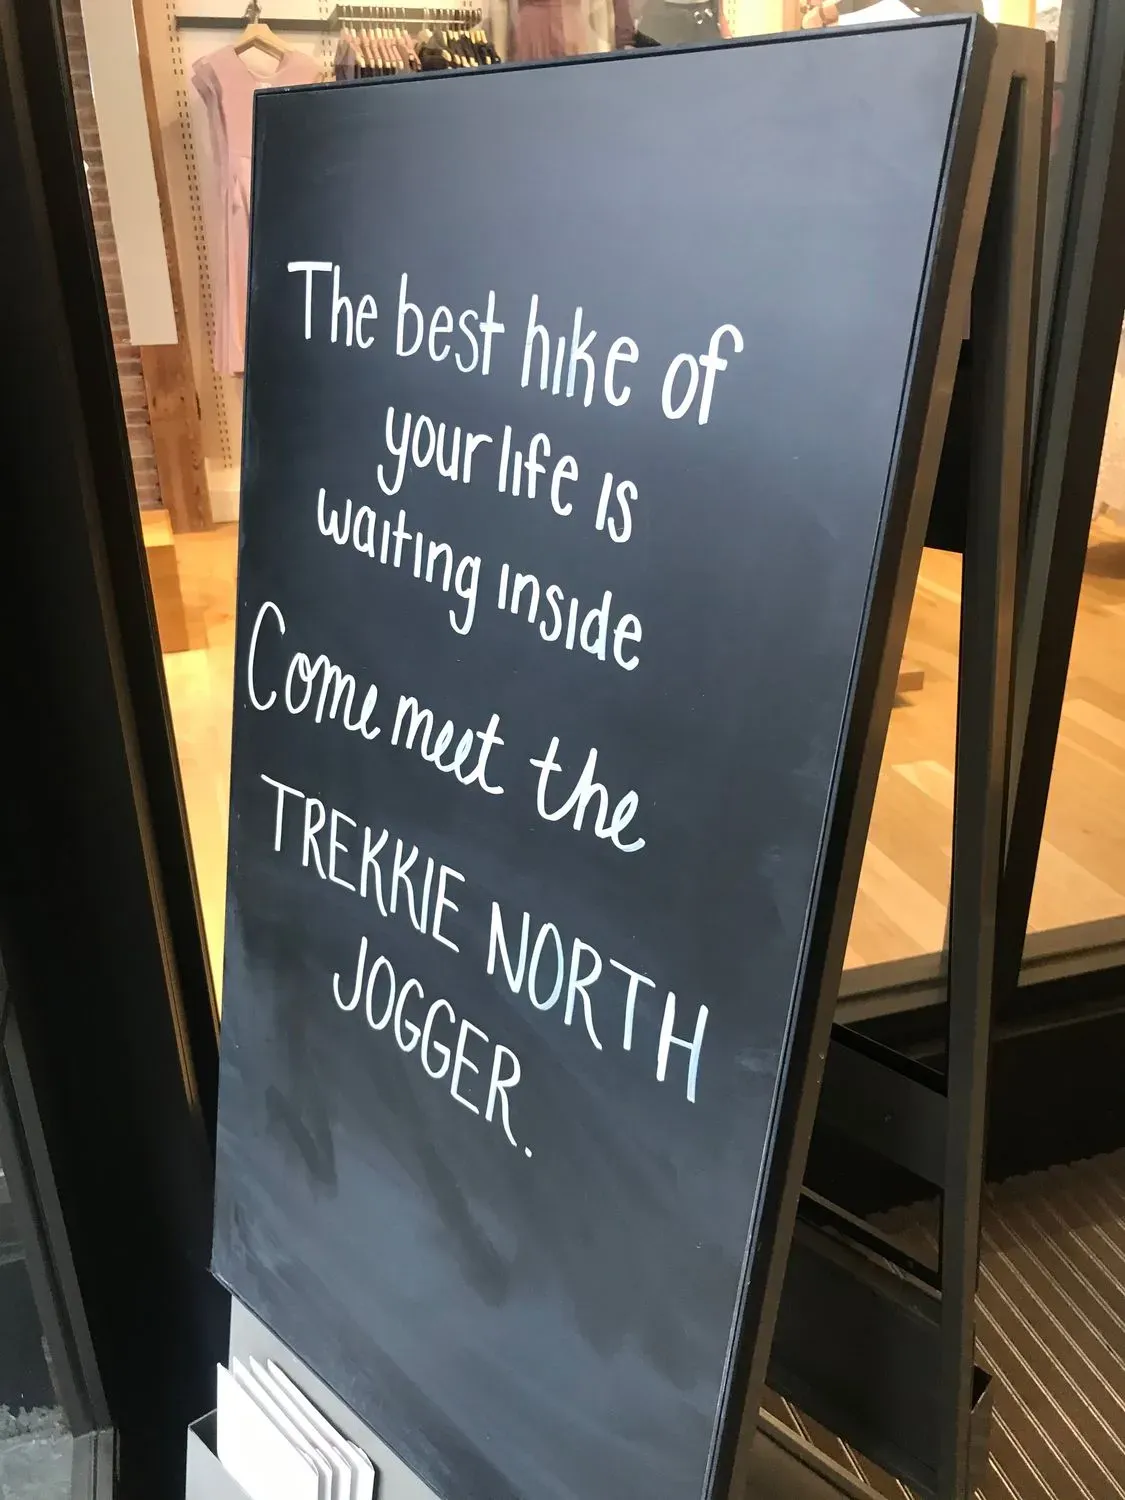 The best hike of
your life is
waiting inside
Come meet the
TREKKIE NORTH
JOGGER.